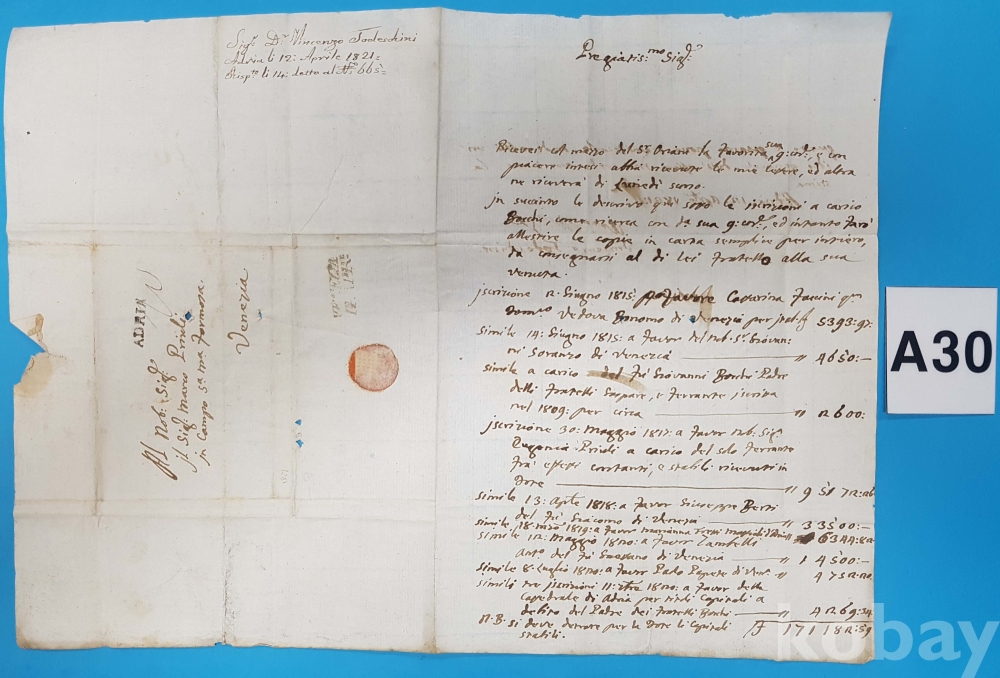 Sigr. Dr. Vincenzo Todeschini
Adria li 12: Aprile 1821=
Rispto li 14: detto al No: 665=
Pregiatis:mo Sigr:
Ricevei col mezzo del Sr. Oriani la favorita sua g: cord:, e con
piacere intesi abbia ricevute le mie lettere, ed altra
ne riceverà di Lunedì scorso.
In succinto le descrivo qui sotto le iscrizioni a carico
Bocchi, come ricerca con la sua g: cord:, ed intanto farò
allestire le copie in carta semplice per intiero,
da consegnarsi al di Lei fratello alla sua
venuta.
Iscrizione 12. Giugno 1815: a favore Catterina Faccini qm
Domco Vedova Bonomo di Venezia per 5393:97:
Simile 14: Giugno 1815: a favor del Nob: Sr. Giovan:
ni Soranzo di Venezia " 4650:-
Simile a carico del fu Giovanni Bocchi Padre
delli fratelli Gaspare, e Ferrante iscritta
nel 1809: per circa " 12600:
Iscrizione 30: Maggio 1817: a favor Nob: Sigra
Eugenia Prioli a carico del solo Ferrante
fra effetti contanti, e stabili ricevuti in
Dote "
Simile 13: Aprile 1818: a favor Giuseppe Berti
del fu Giacomo di Venezia " 33500:-
Simile 18: Marzo 1819: a favor Marianna
Simile 12: Maggio 1820: a favor Zambelli
Anto: del fu Gaetano di Venezia " 14500:-
Simile 8: Luglio 1820: a favor Paolo di Ven:
Simili tre iscrizioni 11: 1820: a favor della
Catedrale di Adria per Capitali a
debito del Padre dei fratelli Bocchi " 4269:34
171182:59
N.B. si deve detrare per la Dote li Capitali
stabili.
ADRIA
Al Nob: Sigr.
Il Sigr. Marco Prioli
in Campo Sta. Ma. Formosa.
Venezia
A30
kobay